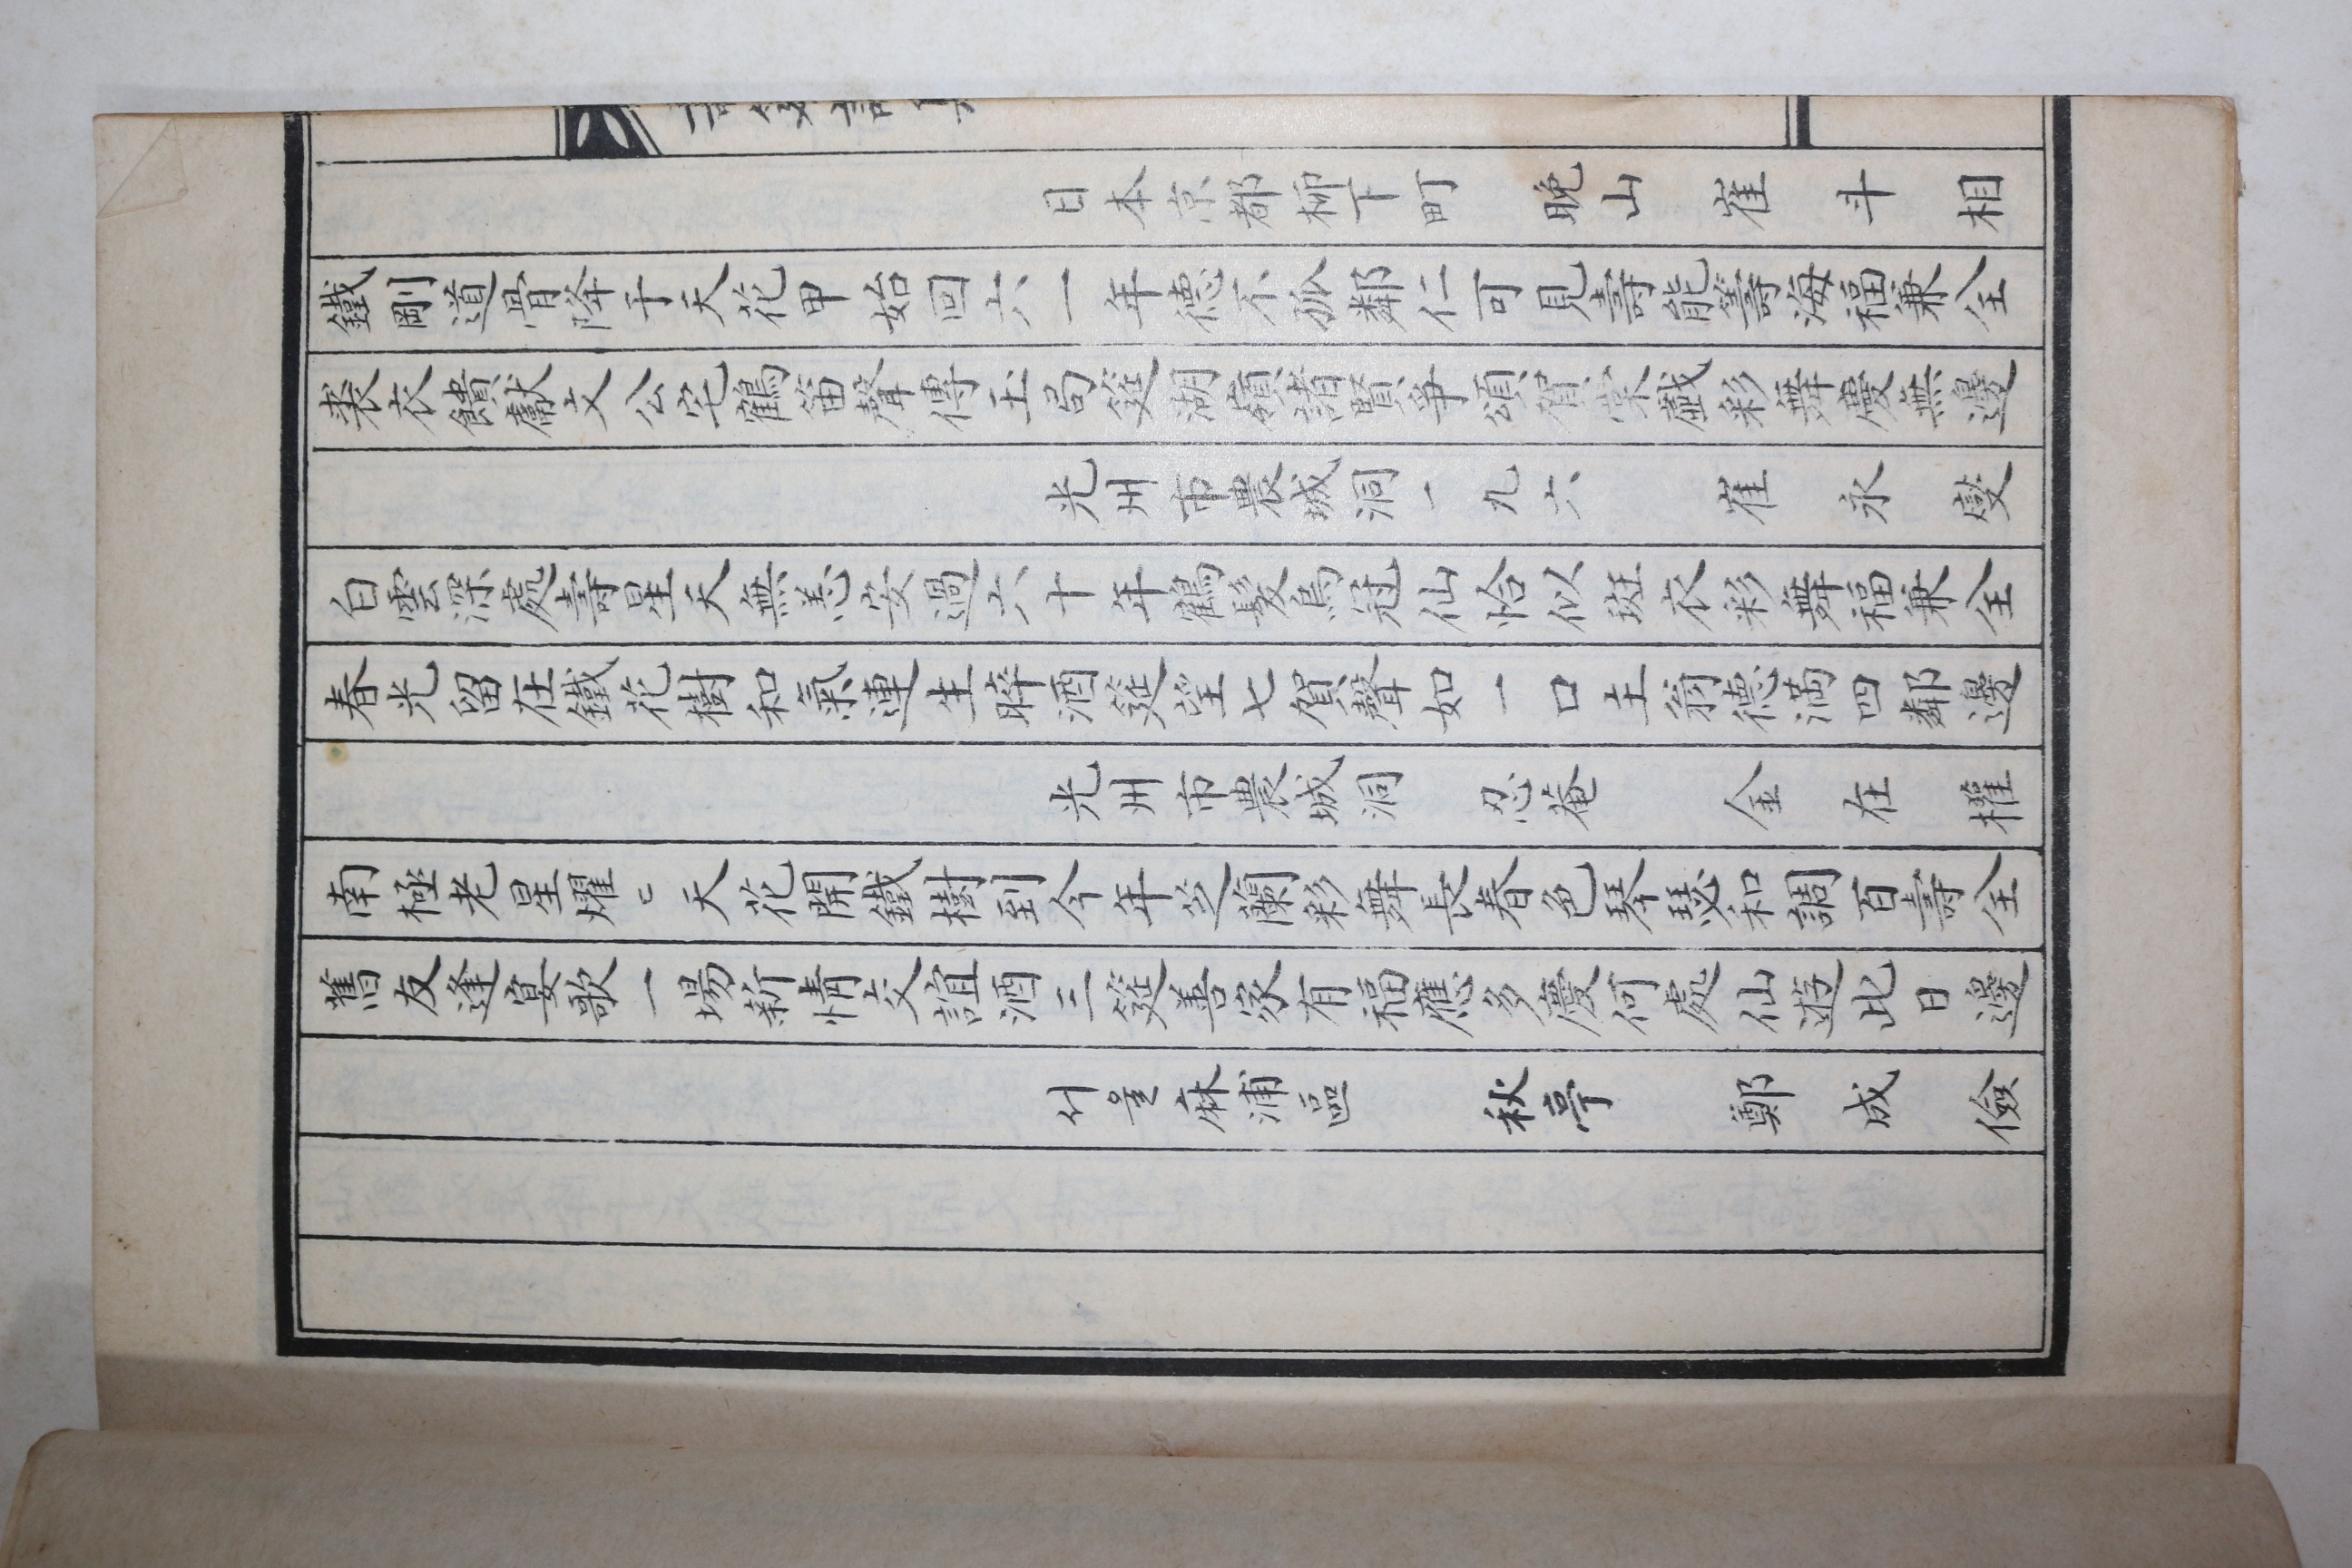 日本京都柳下町 晚山 崔斗相
鐵剛道骨降于天花甲始回六一年德不孤鄰仁可見壽能籌海福兼全
裘衣饋獻文公宅鶴笛聲傳玉局筵湖嶺諸賢爭頌賀棠戱彩舞慶無邊
光州市農城洞一九六 崔永燮
白雲深處壽星天無恙安過六十年鶴髮烏冠仙恰似斑衣彩舞福兼全
春光留在鐵花樹和氣連生晬酒筵望七賀聲如一口主翁德滿四鄰邊
光州市農城洞 忍菴 金在權
南極老星燿〻天花開鐵樹到今年芝蘭彩舞長春色琴瑟和調百壽全
舊友逢宴歌一場新情交誼酒三筵善家有福應多慶何處仙遊此日邊
서울麻浦區 秋亭 鄭成儉